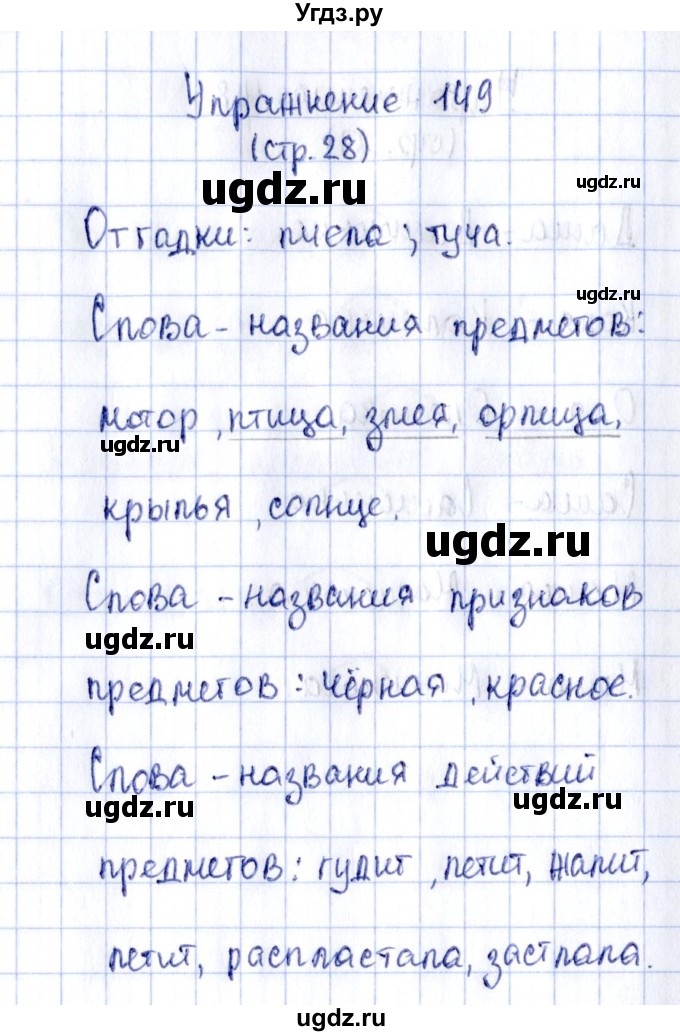 Угдз.ру
Упражнение 149
(стр. 28)
ugdz.ru
ugdz.ru
Отгадки: пчела; туча.
ugdz.ru
Слова - названия предметов:
мотор, птица, змея, орлица,
ugdz.ru
крылья, солнце.
ugdz.ru
Слова - названия признаков
ugdz.ru
предметов: чёрная, красное.
Слова - названия действий
ugdz.ru
ugdz.ru
предметов: гудит, летит, жалит,
летит, распластала, застлала.
ugdz.ru